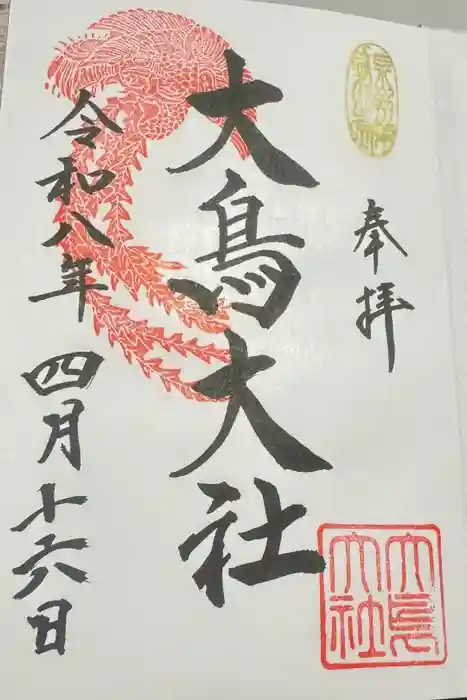 奉拝
大鳥大社
令和八年四月十六日
大鳥大社